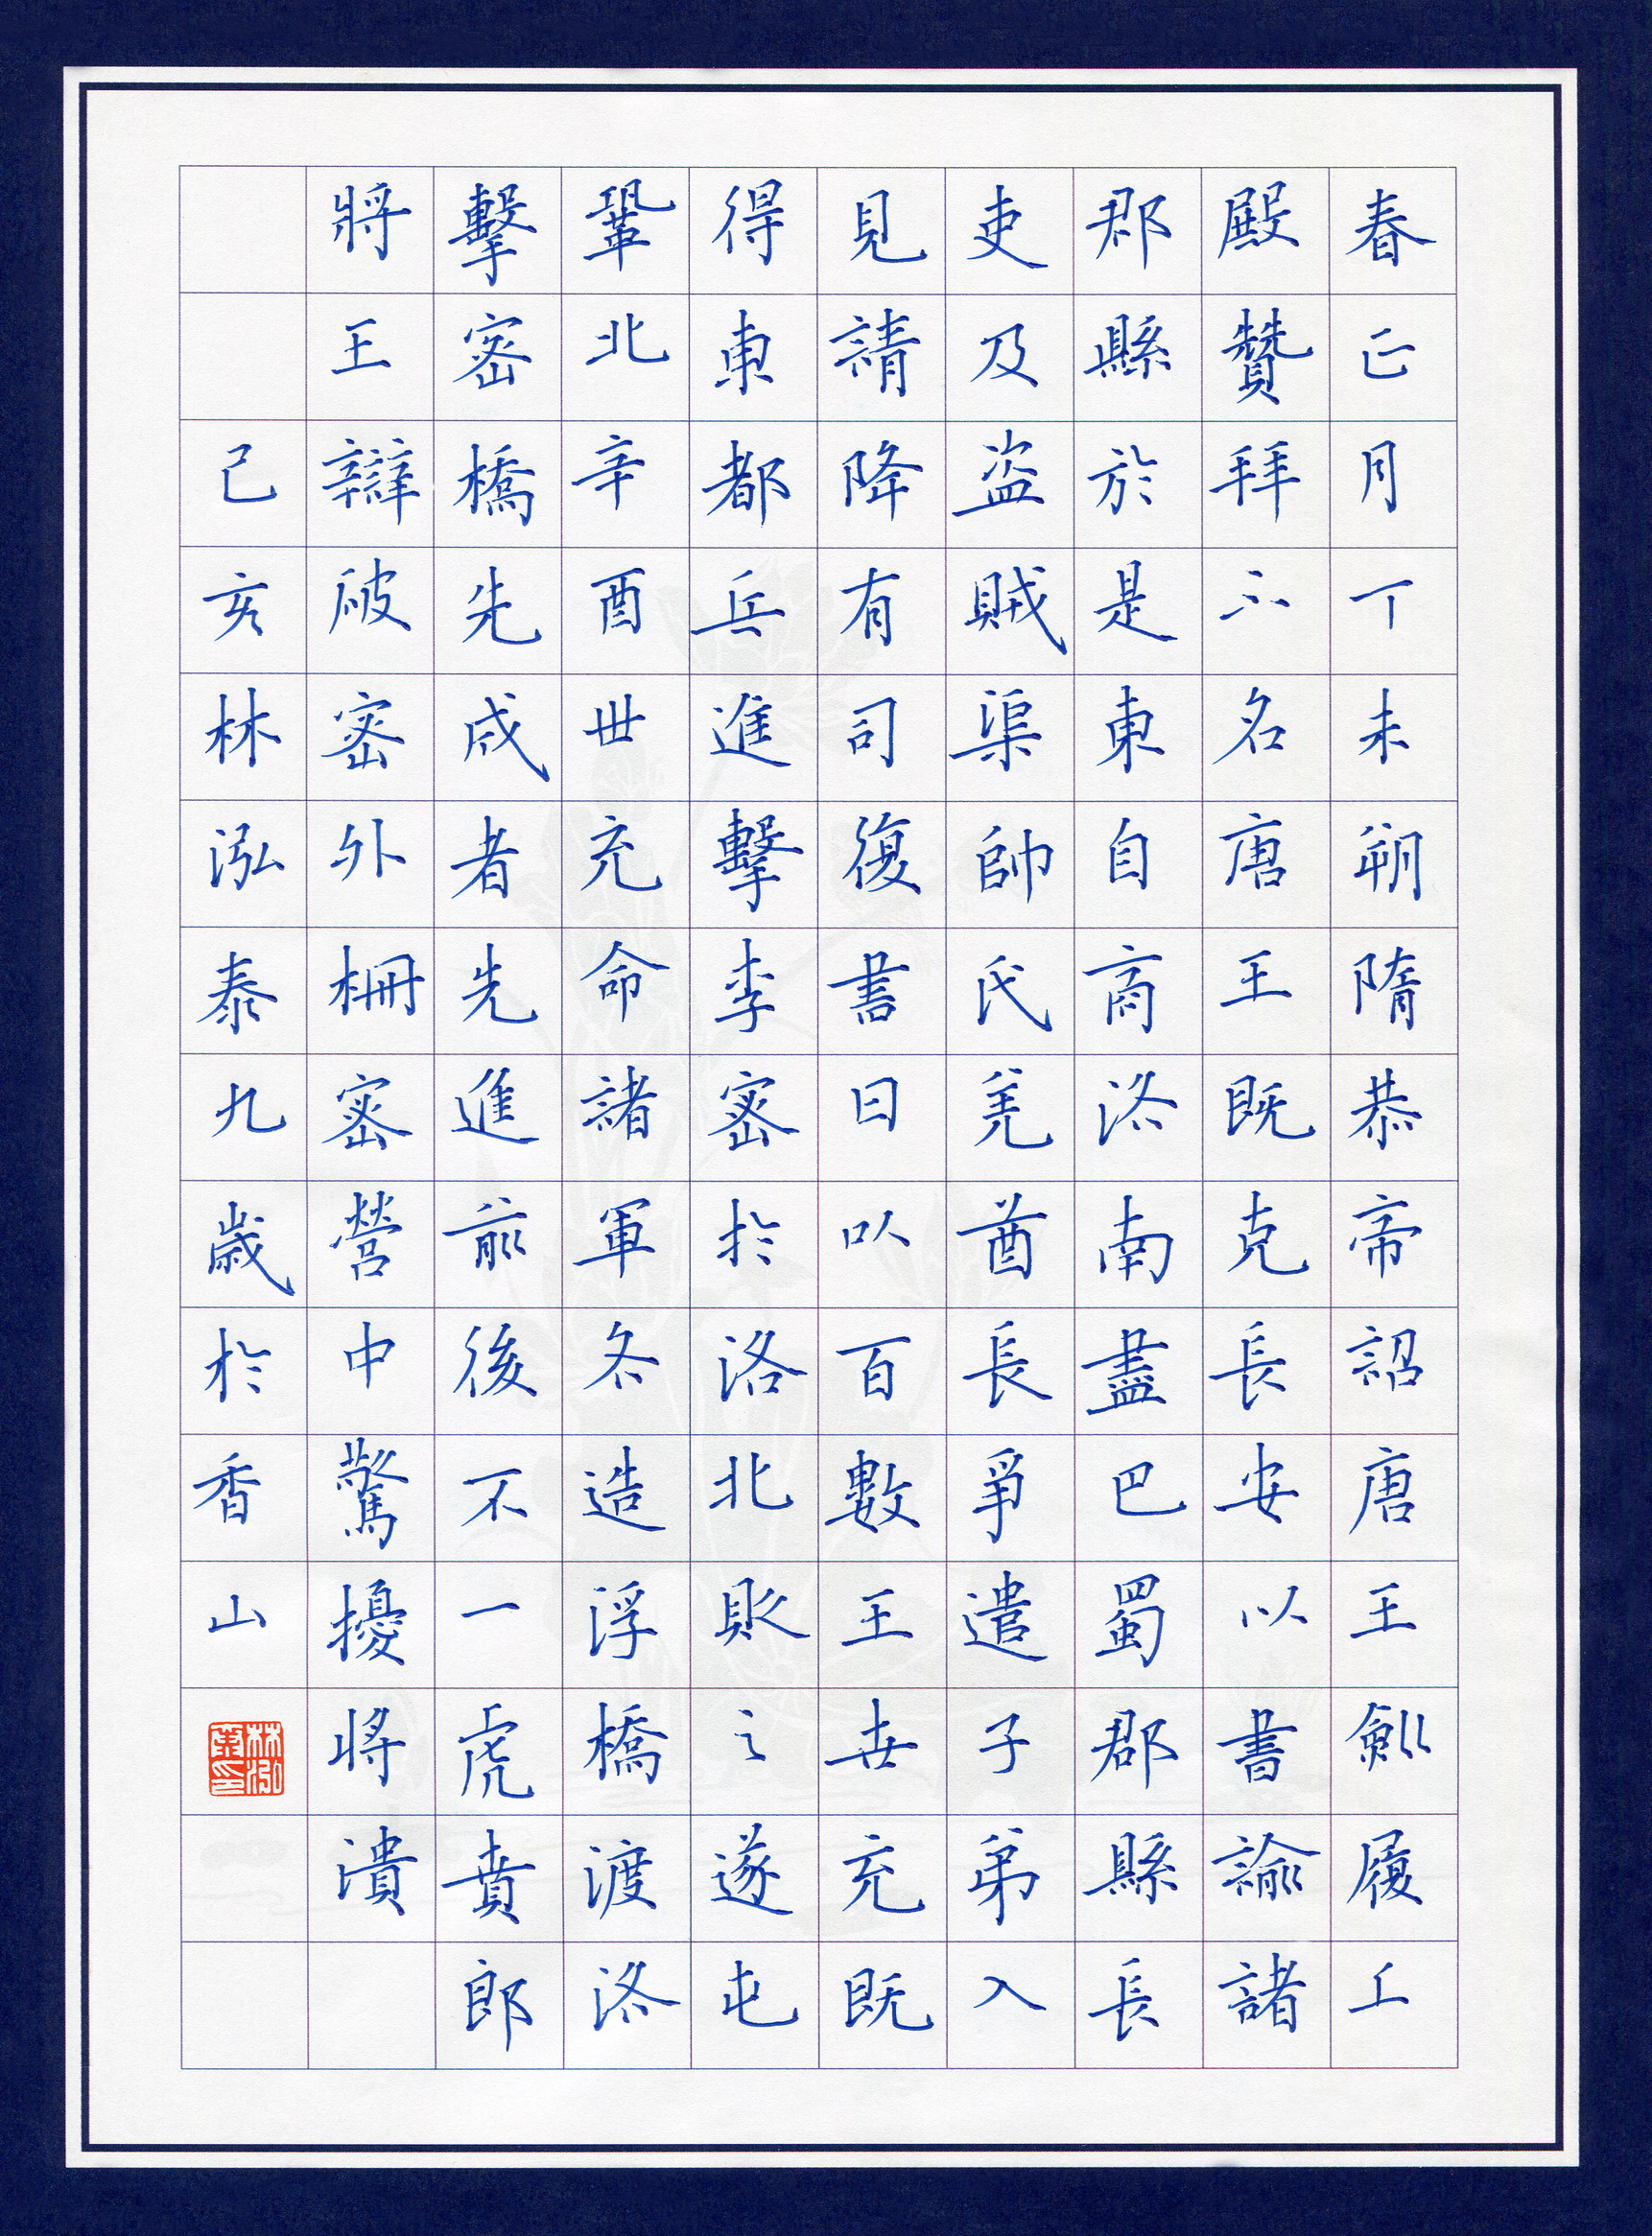 春正月丁未朔隋恭帝詔唐王劍履上
殿贊拜不名唐王既克長安以書諭諸
郡縣於是東自商洛南盡巴蜀郡縣長
吏及盜賊渠帥氏羌酋長爭遣子弟入
見請降有司復書日以百數王世充既
得東都兵進擊李密於洛北敗之遂屯
鞏北辛酉世充命諸軍各造浮橋渡洛
擊密橋先成者先進前後不一虎賁郎
將王辯破密外柵密營中驚擾將潰
己亥林泓泰九歲於香山
林泓泰印